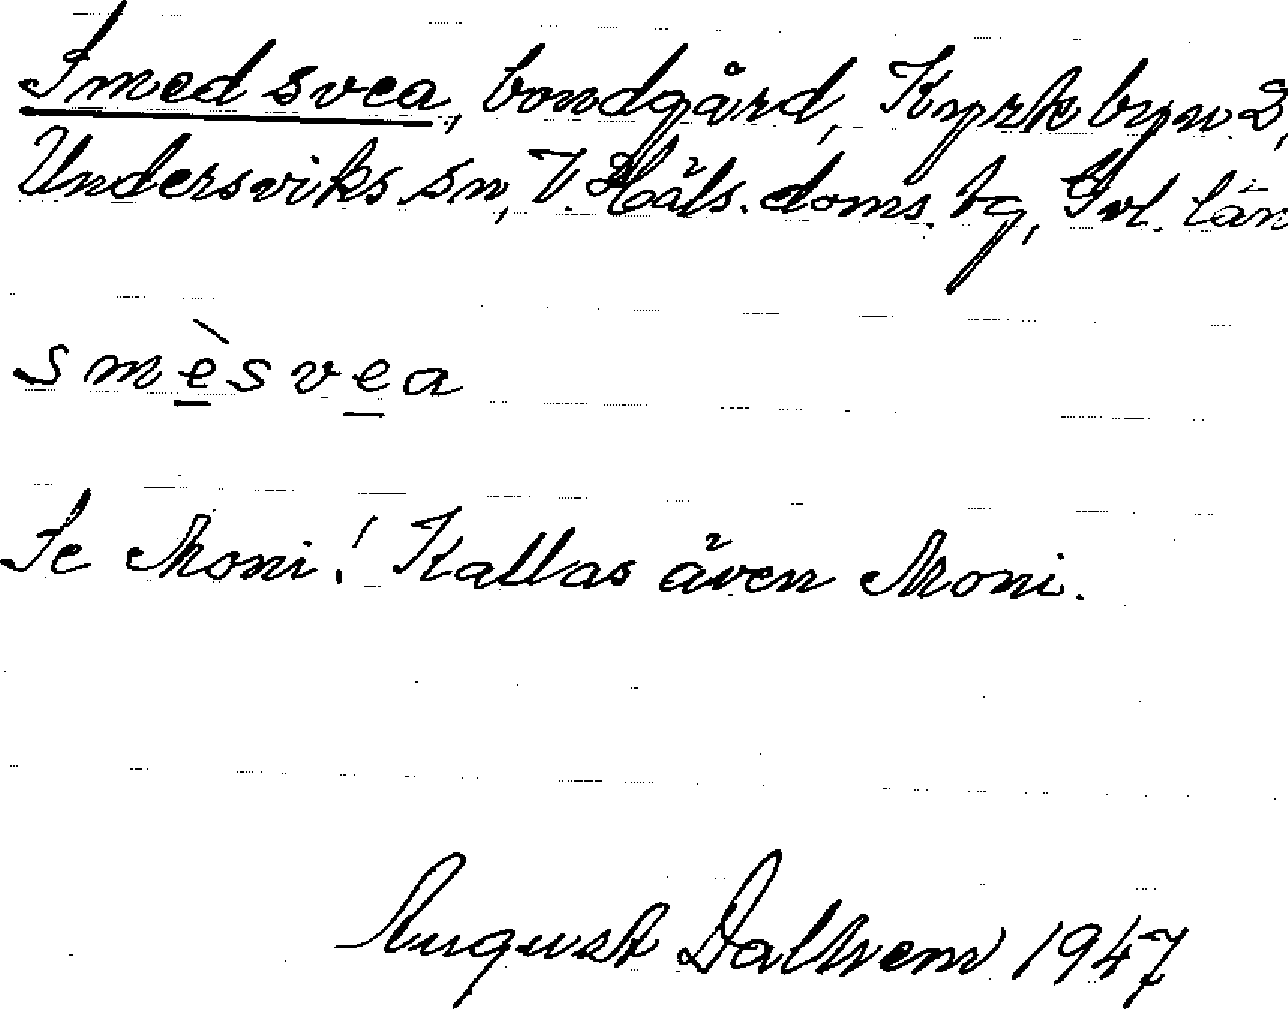 Smedsvea, bondgård, Kyrkbyn 2,
Undersviks sn, V. Häls. doms. tg, Gvl. län
smèsvea
Se Moni! Kallas även Moni.
August Dalhem 1947